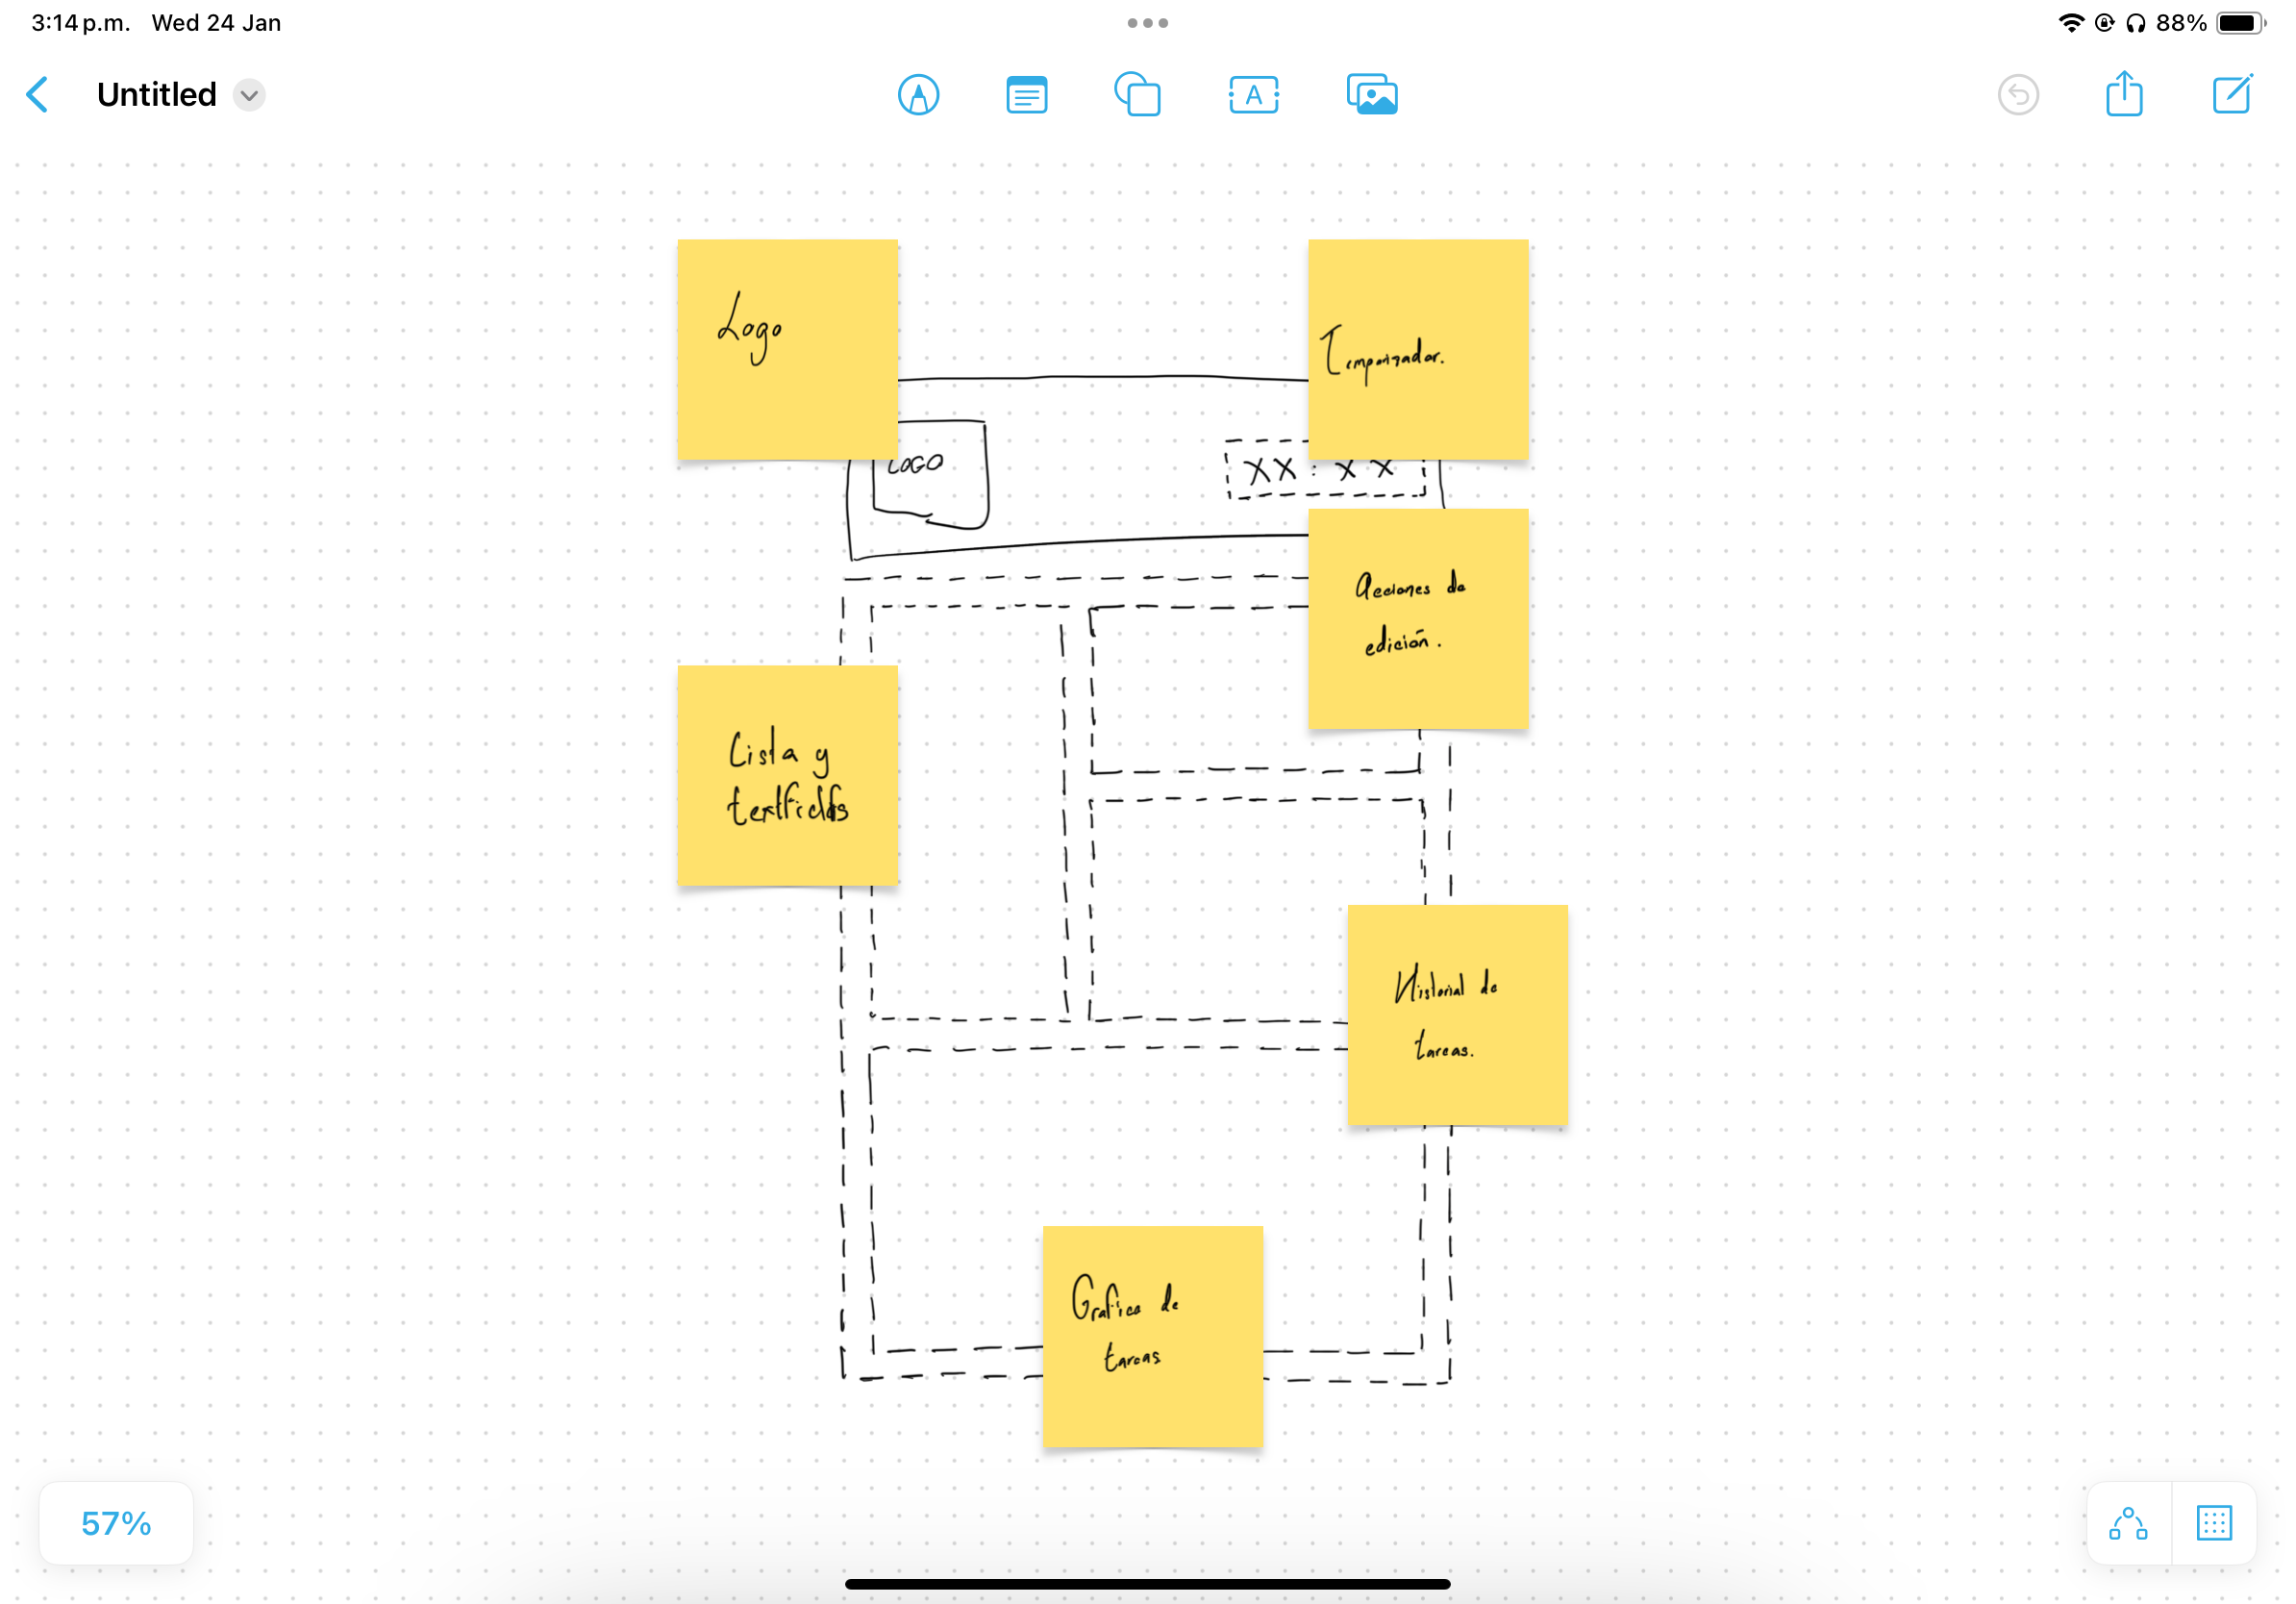 3:14 p.m. Wed 24 Jan
88%
Untitled
A
Logo
Temporizador.
LOGO
XX : XX
Acciones de
edición.
Lista y
textfields
Historial de
tareas.
Grafica de
tareas
57%